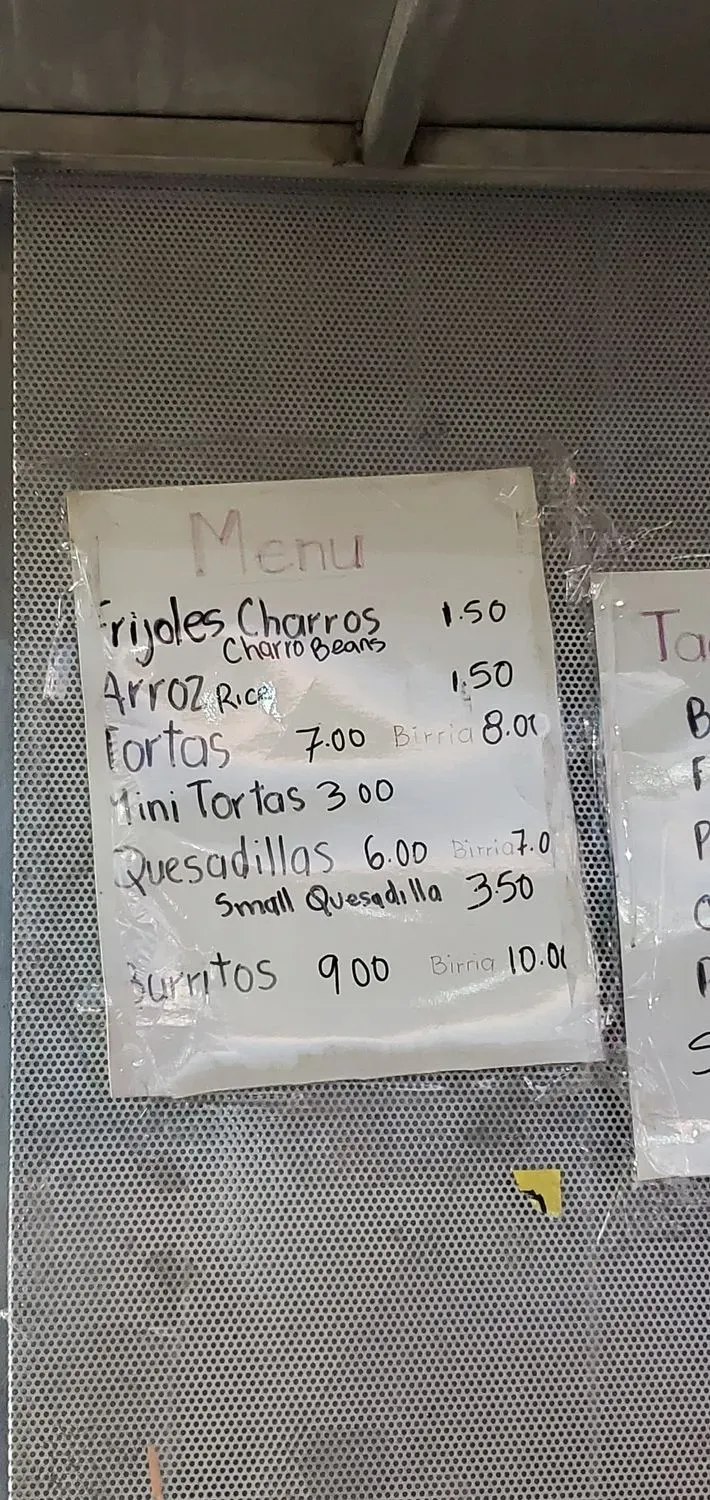 Menu
Frijoles Charros 1.50
Charro Beans
Arroz Rice 1.50
Tortas 7.00 Birria 8.00
Mini Tortas 3 00
Quesadillas 6.00 Birria 7.0
Small Quesadilla 3.50
Burritos 9 00 Birria 10.00
Ta
B
F
P